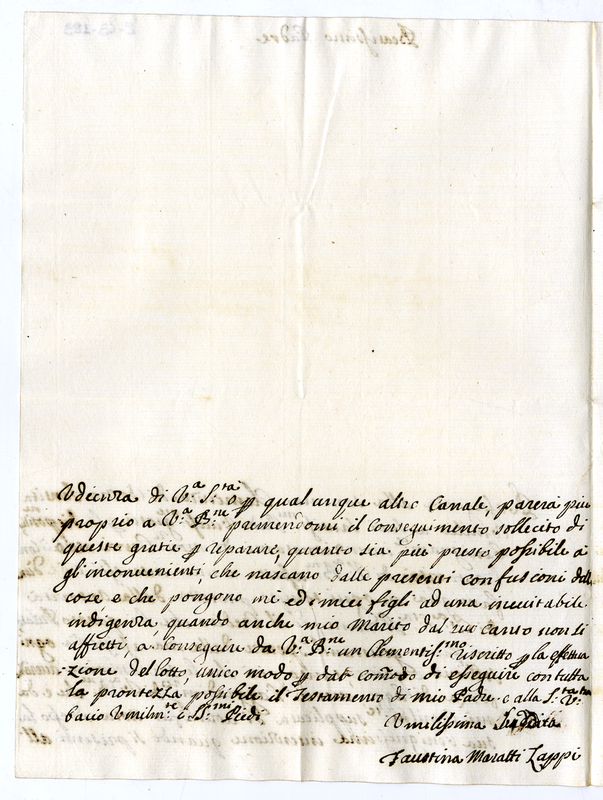 Udienza di V.ª S.ᵗᵃ o ꝑ qual unque altro Canale, parerà piu
proprio a V.ª B.ⁿᵉ premendomi il Conseguimento sollecito di
queste gratie ꝑ reparare, quanto sia piú presto possibile a
gl'inconvenienti, che nascano dalle presenti confusioni delle
cose e che pongono me ed i miei figli ad una inevitabile
indigenza quando anche mio Marito dal suo canto non si
affretti, a conseguire da V.ª B.ⁿᵉ un Clementis.ᵐᵒ riscritto ꝑ la effettua
-zione del lotto, unico modo ꝑ dar comodo di eseguire con tutta
la prontezza possibile il Testamento di mio Padre e alla S.ᵗᵃ V.ʳᵃ
bacio Umilm.ᵗᵉ i S.ᵐⁱ Piedi
Umilissima Suddita
Faustina Maratti Zappi